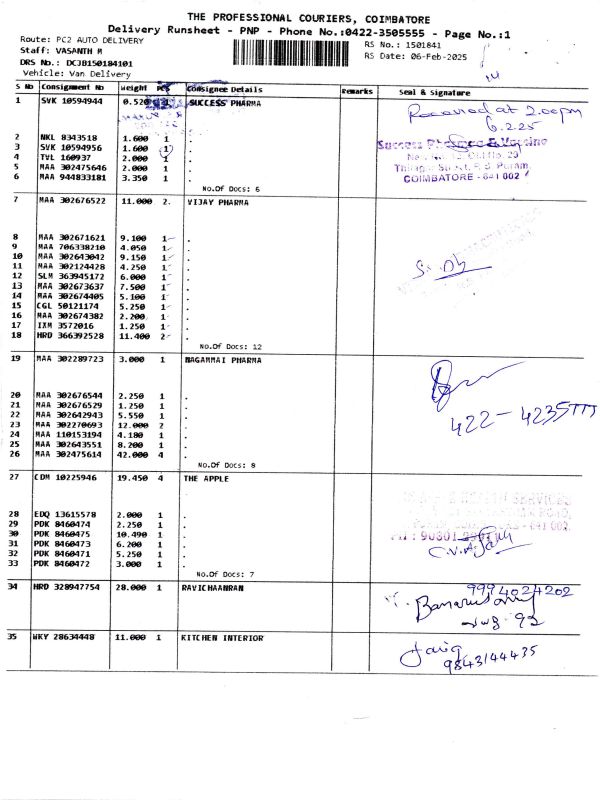 THE PROFESSIONAL COURIERS, COIMBATORE
Delivery Runsheet - PNP - Phone No.:0422-3505555 - Page No.:1
Route: PC2 AUTO DELIVERY
RS No.: 1501841
Staff: VASANTH M
RS Date: 06-Feb-2025
DRS No.: DCJB150184101
Vehicle: Van Delivery
S No Consignment No Weight PCS Consignee Details Remarks Seal & Signature
1 SVK 10594944 0.520 SUCCESS PHARMA
Received at 2.00pm
6.2.25
2 NKL 8343518 1.600 1 .
3 SVK 10594956 1.600 1 .
4 TVL 160937 2.000 1 .
5 MAA 302475646 2.000 1 .
6 MAA 944833181 3.350 1 .
Success Pharma & Vaccine
COIMBATORE - 641 002
No.Of Docs: 6
7 MAA 302676522 11.000 2. VIJAY PHARMA
8 MAA 302671621 9.100 1 .
9 MAA 706338210 4.050 1 .
10 MAA 302643042 9.150 1 .
11 MAA 302124428 4.250 1 .
12 SLM 363945172 6.000 1 .
13 MAA 302673637 7.500 1 .
14 MAA 302674405 5.100 1 .
15 CGL 50121174 5.250 1 .
16 MAA 302674382 2.200 1 .
17 IXM 3572016 1.250 1 .
18 HRD 366392528 11.400 2 .
No.Of Docs: 12
19 MAA 302289723 3.000 1 NAGAMMAI PHARMA
20 MAA 302676544 2.250 1 .
21 MAA 302676529 1.250 1 .
22 MAA 302642943 5.550 1 .
23 MAA 302270693 12.000 2 .
24 MAA 110153194 4.180 1 .
25 MAA 302643551 8.200 1 .
26 MAA 302475614 42.000 4 .
No.Of Docs: 8
27 CDM 10225946 19.450 4 THE APPLE
28 EDQ 13615578 2.000 1 .
29 PDK 8460474 2.250 1 .
30 PDK 8460475 10.490 1 .
31 PDK 8460473 6.200 1 .
32 PDK 8460471 5.250 1 .
33 PDK 8460472 3.000 1 .
No.Of Docs: 7
34 HRD 328947754 28.000 1 RAVICHAANRAN
9994024202
35 WKY 28634448 11.000 1 KITCHEN INTERIOR
9843144435